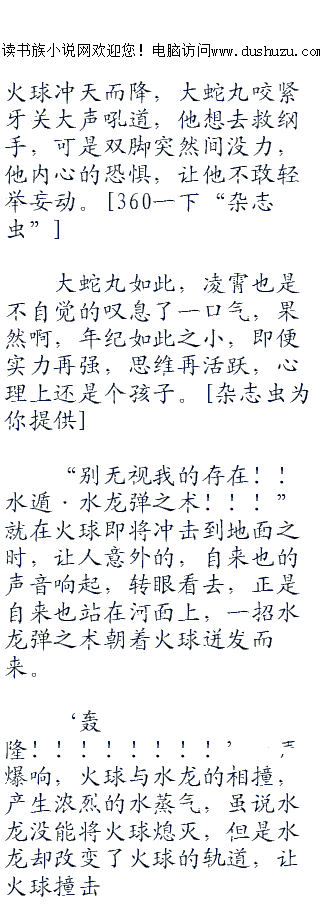 读书族小说网欢迎您！电脑访问www.dushuzu.com
火球冲天而降，大蛇丸咬紧
牙关大声吼道，他想去救纲
手，可是双脚突然间没力，
他内心的恐惧，让他不敢轻
举妄动。[360一下“杂志
虫”]
大蛇丸如此，凌霄也是
不自觉的叹息了一口气，果
然啊，年纪如此之小，即便
实力再强，思维再活跃，心
理上还是个孩子。[杂志虫为
你提供]
“别无视我的存在！！
水遁·水龙弹之术！！！”
就在火球即将冲击到地面之
时，让人意外的，自来也的
声音响起，转眼看去，正是
自来也站在河面上，一招水
龙弹之术朝着火球迸发而
来。
‘轰
隆！！！！！！！！’
爆响，火球与水龙的相撞，
产生浓烈的水蒸气，虽说水
龙没能将火球熄灭，但是水
龙却改变了火球的轨道，让
火球撞击